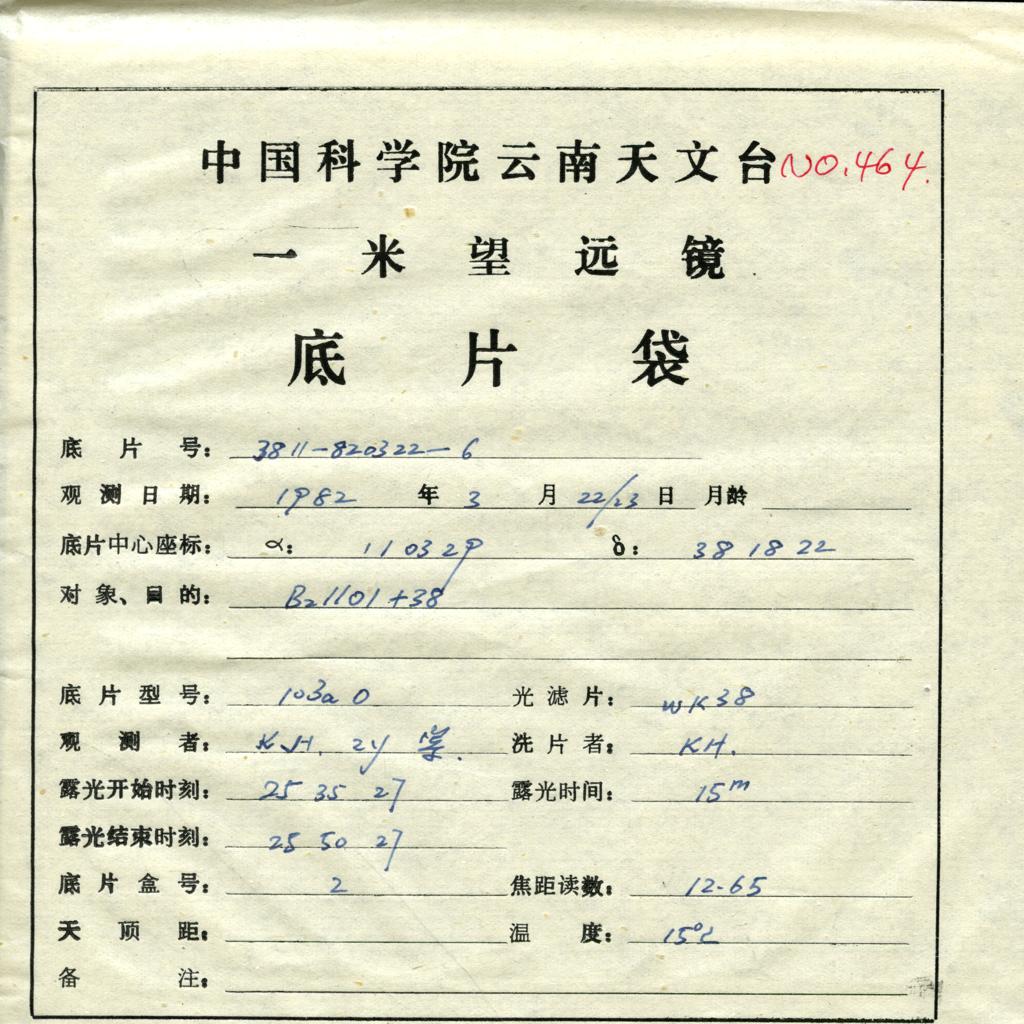 中国科学院云南天文台 NO.464.
一米望远镜
底片袋
底片号: 3811-820322-6
观测日期: 1982 年 3 月 22/23 日 月龄
底片中心座标: α: 110329 δ: 381822
对象、目的: B21101+38
底片型号: 103a O 光滤片: WK38
观测者: K.H. ZY 洗片者: KH.
露光开始时刻: 25 35 27 露光时间: 15m
露光结束时刻: 25 50 27
底片盒号: 2 焦距读数: 12.65
天顶距: 温度: 15℃
备注: